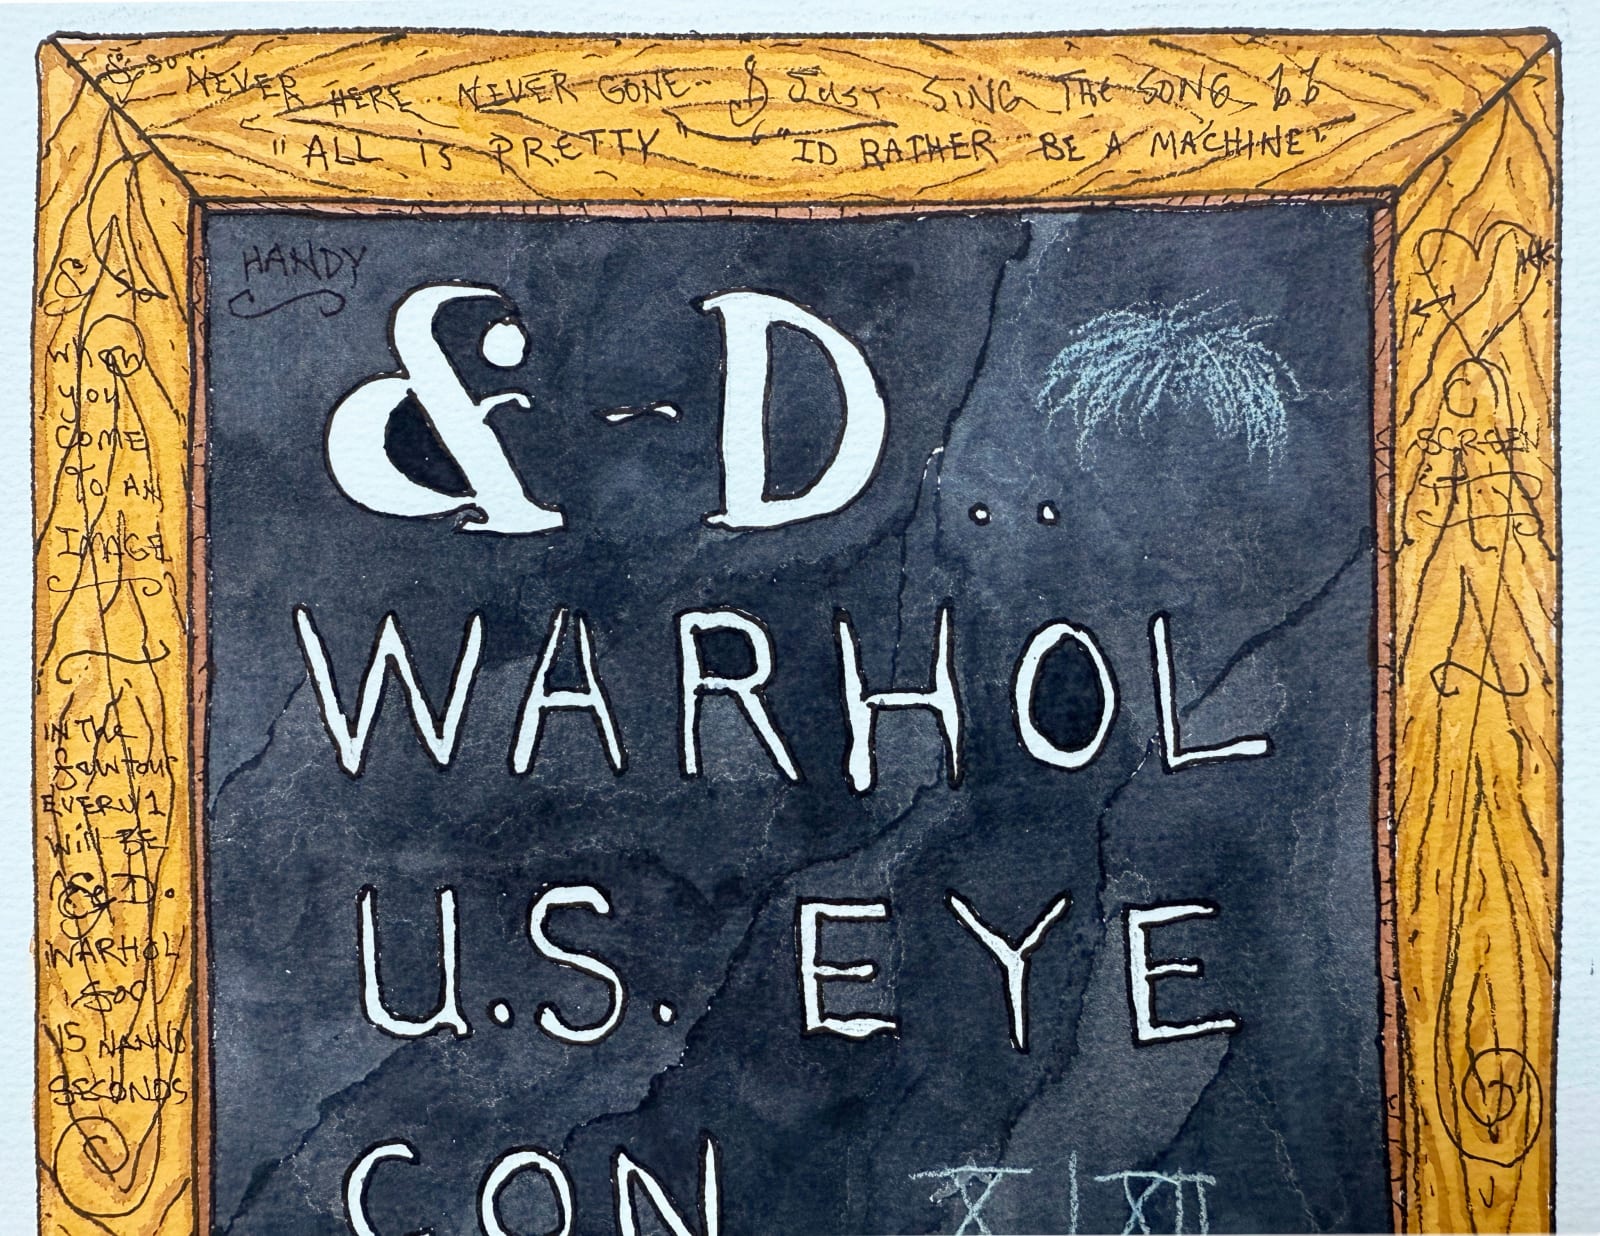 & so NEVER HERE NEVER GONE & JUST SING THE SONG
"ALL is PRETTY" "ID RATHER BE A MACHINE"
HANDY
&-D..
WARHOL
U.S. EYE
CON X | XII
& So
when
you
COME
TO AN
IMAGE
IN THE
EVERY 1
Will BE
& D.
WARHOL
15 NANNO
SECONDS
C
SCREEN
IT